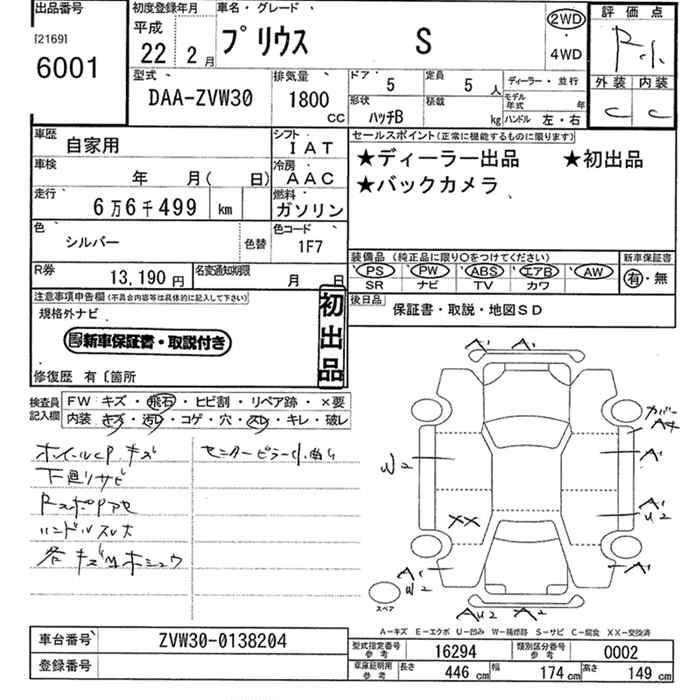 出品番号
[2169]
6001
初度登録年月
平成
22 2 月
車名・グレード
プリウス S
2WD
・
4WD
評価点
R
外装 内装
C C
型式
DAA-ZVW30
排気量
1800
CC
ドア
5
定員
5 人
形状
ハッチB
積載
kg
ディーラー・並行
モデル年式 年
ハンドル 左・右
車歴
自家用
シフト
IAT
車検
年 月( 日)
冷房
AAC
走行
6万6千499 km
燃料
ガソリン
色
シルバー
色替
色コード
1F7
R券
13,190 円
名変通知期限
月 日
セールスポイント(正常に機能するものに限ります)
★ディーラー出品 ★初出品
★バックカメラ
装備品 (純正品に限り○をつけてください)
PS PW ABS エアB AW
SR ナビ TV カワ
新車保証書
有・無
後日品
保証書・取説・地図SD
注意事項申告欄(不具合内容等は具体的に記入して下さい)
規格外ナビ
新車保証書・取説付き
初出品
修復歴 有〔箇所
検査員記入欄
FW キズ・飛石・ヒビ割・リペア跡・×要
内装 キズ・汚レ・コゲ・穴・スレ・キレ・破レ
ホイールCP キズ
下廻りサビ
ハンドルスレ大
センターピラー小曲り
A' A'
カバー
A4
W2
A'
A'
U2
XX
A'
W2
A'
AU2 A2
スペア
A-キズ E-エクボ U-凹み W-補修跡 S-サビ C-腐食 XX-交換済
車台番号
ZVW30-0138204
登録番号
型式指定番号
参考
16294
類別区分番号
参考
0002
車庫証明用
参考
長さ
446 cm
幅
174 cm
高さ
149 cm